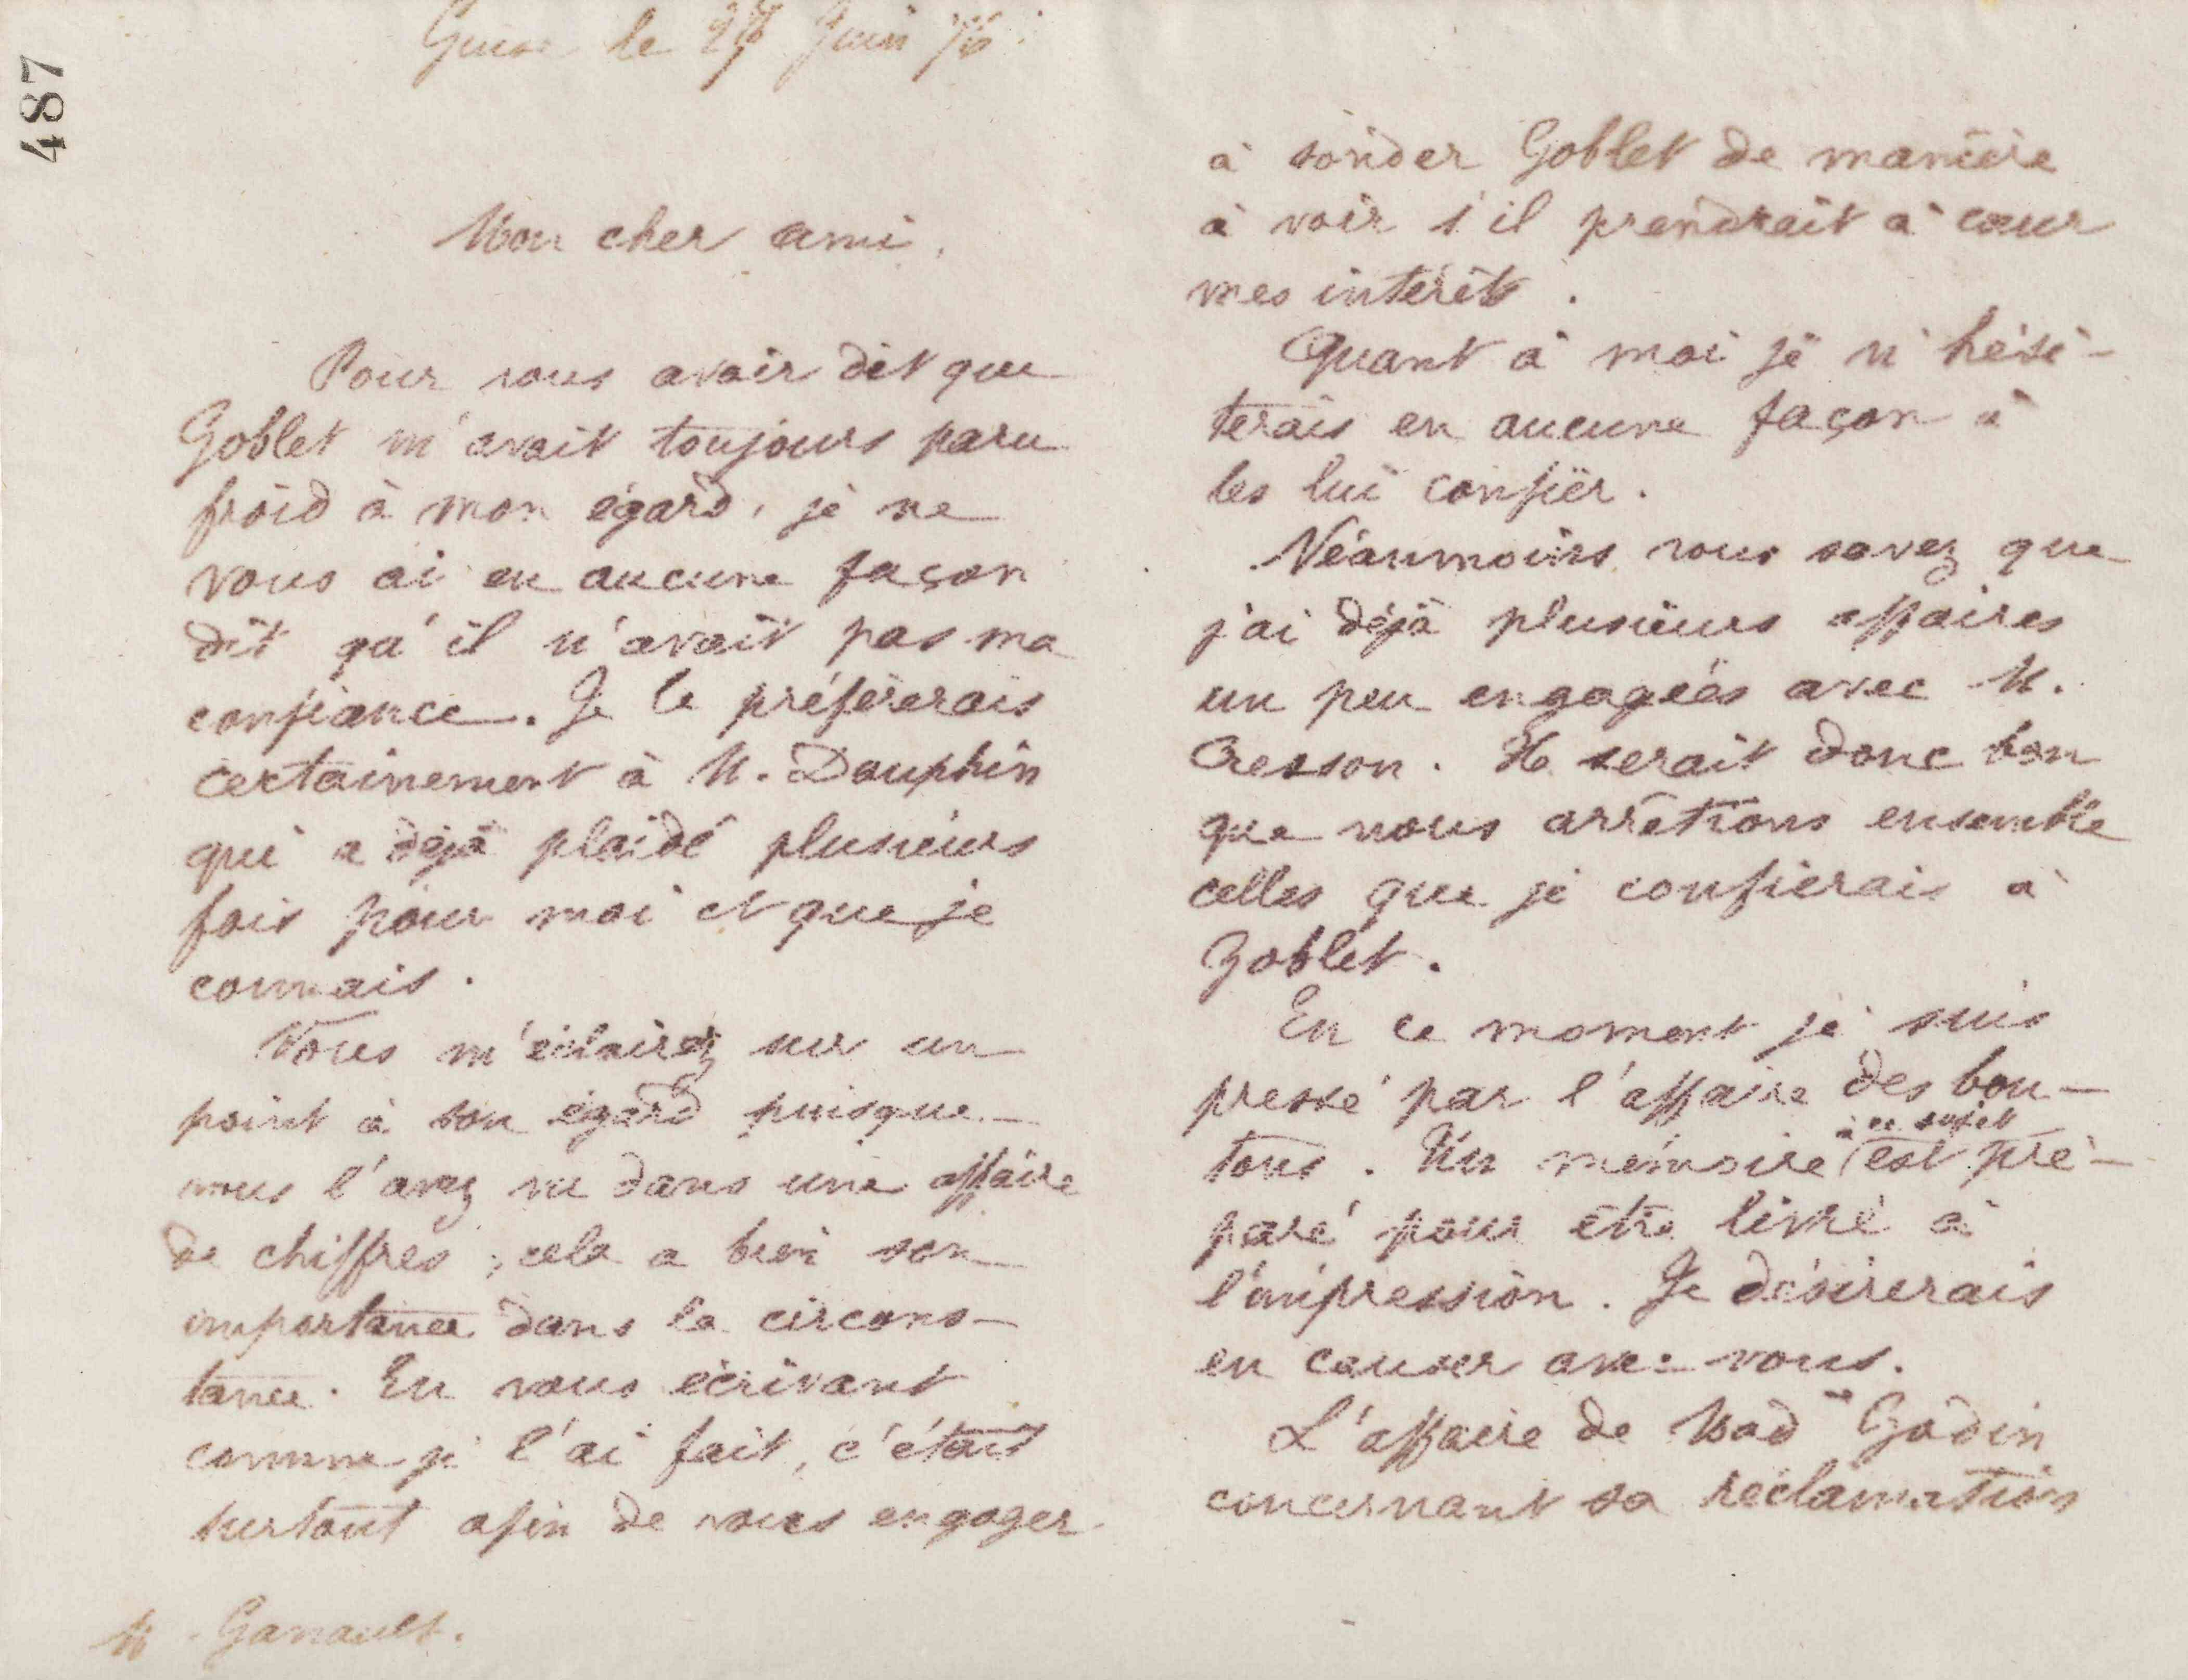 487
Guise le 27 Juin 76
Mon cher ami,
Pour vous avoir dit que
Goblet m'avait toujours paru
froid à mon égard, je ne
vous ai en aucune façon
dit qu'il n'avait pas ma
confiance. Je le préférerais
certainement à M. Dauphin
qui a déjà plaidé plusieurs
fois pour moi et que je
connais.
Vous m'éclairez sur un
point à son égard puisque
vous l'avez vu dans une affaire
de chiffres ; cela a bien son
importance dans la circons-
tance. En vous écrivant
comme je l'ai fait, c'était
surtout afin de vous engager
M. Ganault.
à sonder Goblet de manière
à voir s'il prendrait à cœur
mes intérêts.
Quant à moi je n'hési-
terais en aucune façon à
les lui confier.
Néanmoins vous savez que
j'ai déjà plusieurs affaires
un peu engagées avec M.
Cresson. Il serait donc bon
que nous arrêtions ensemble
celles que je confierais à
Goblet.
En ce moment je suis
pressé par l'affaire des bou-
tons. Un mémoire à ce sujet est pré-
paré pour être livré à
l'impression. Je désirerais
en causer avec vous.
L'affaire de Mad Godin
concernant sa réclamation